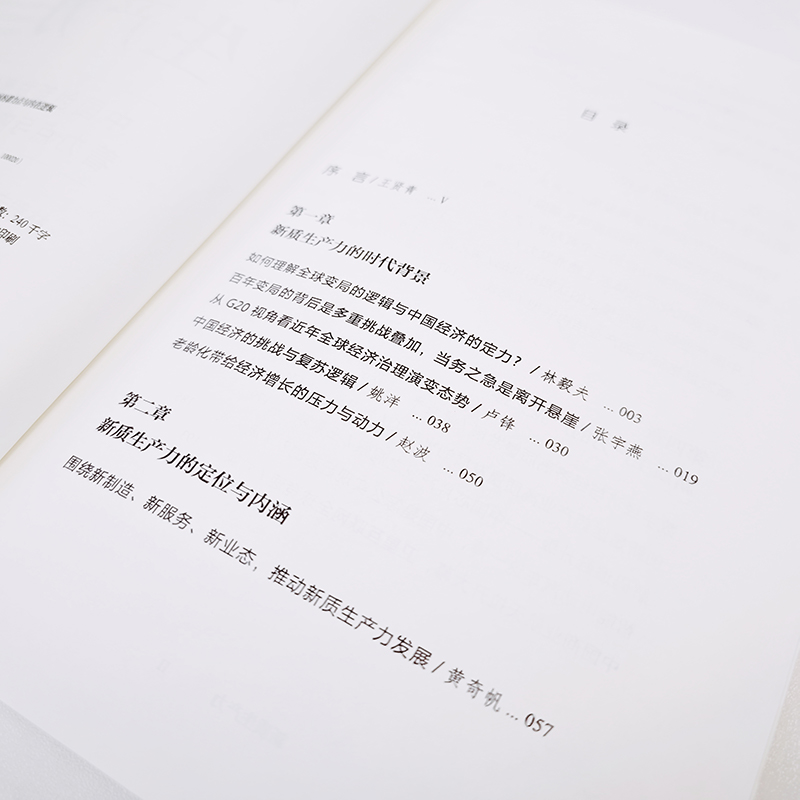 数: 240 千字
印刷
目 录
序 言 / 王贤青 … V
第一章
新质生产力的时代背景
如何理解全球变局的逻辑与中国经济的定力？ / 林毅夫 … 003
百年变局的背后是多重挑战叠加，当务之急是离开悬崖 / 张宇燕 … 019
从 G20 视角看近年全球经济治理演变态势 / 卢锋 … 030
中国经济的挑战与复苏逻辑 / 姚洋 … 038
老龄化带给经济增长的压力与动力 / 赵波 … 050
第二章
新质生产力的定位与内涵
围绕新制造、新服务、新业态，推动新质生产力发展 / 黄奇帆 … 057